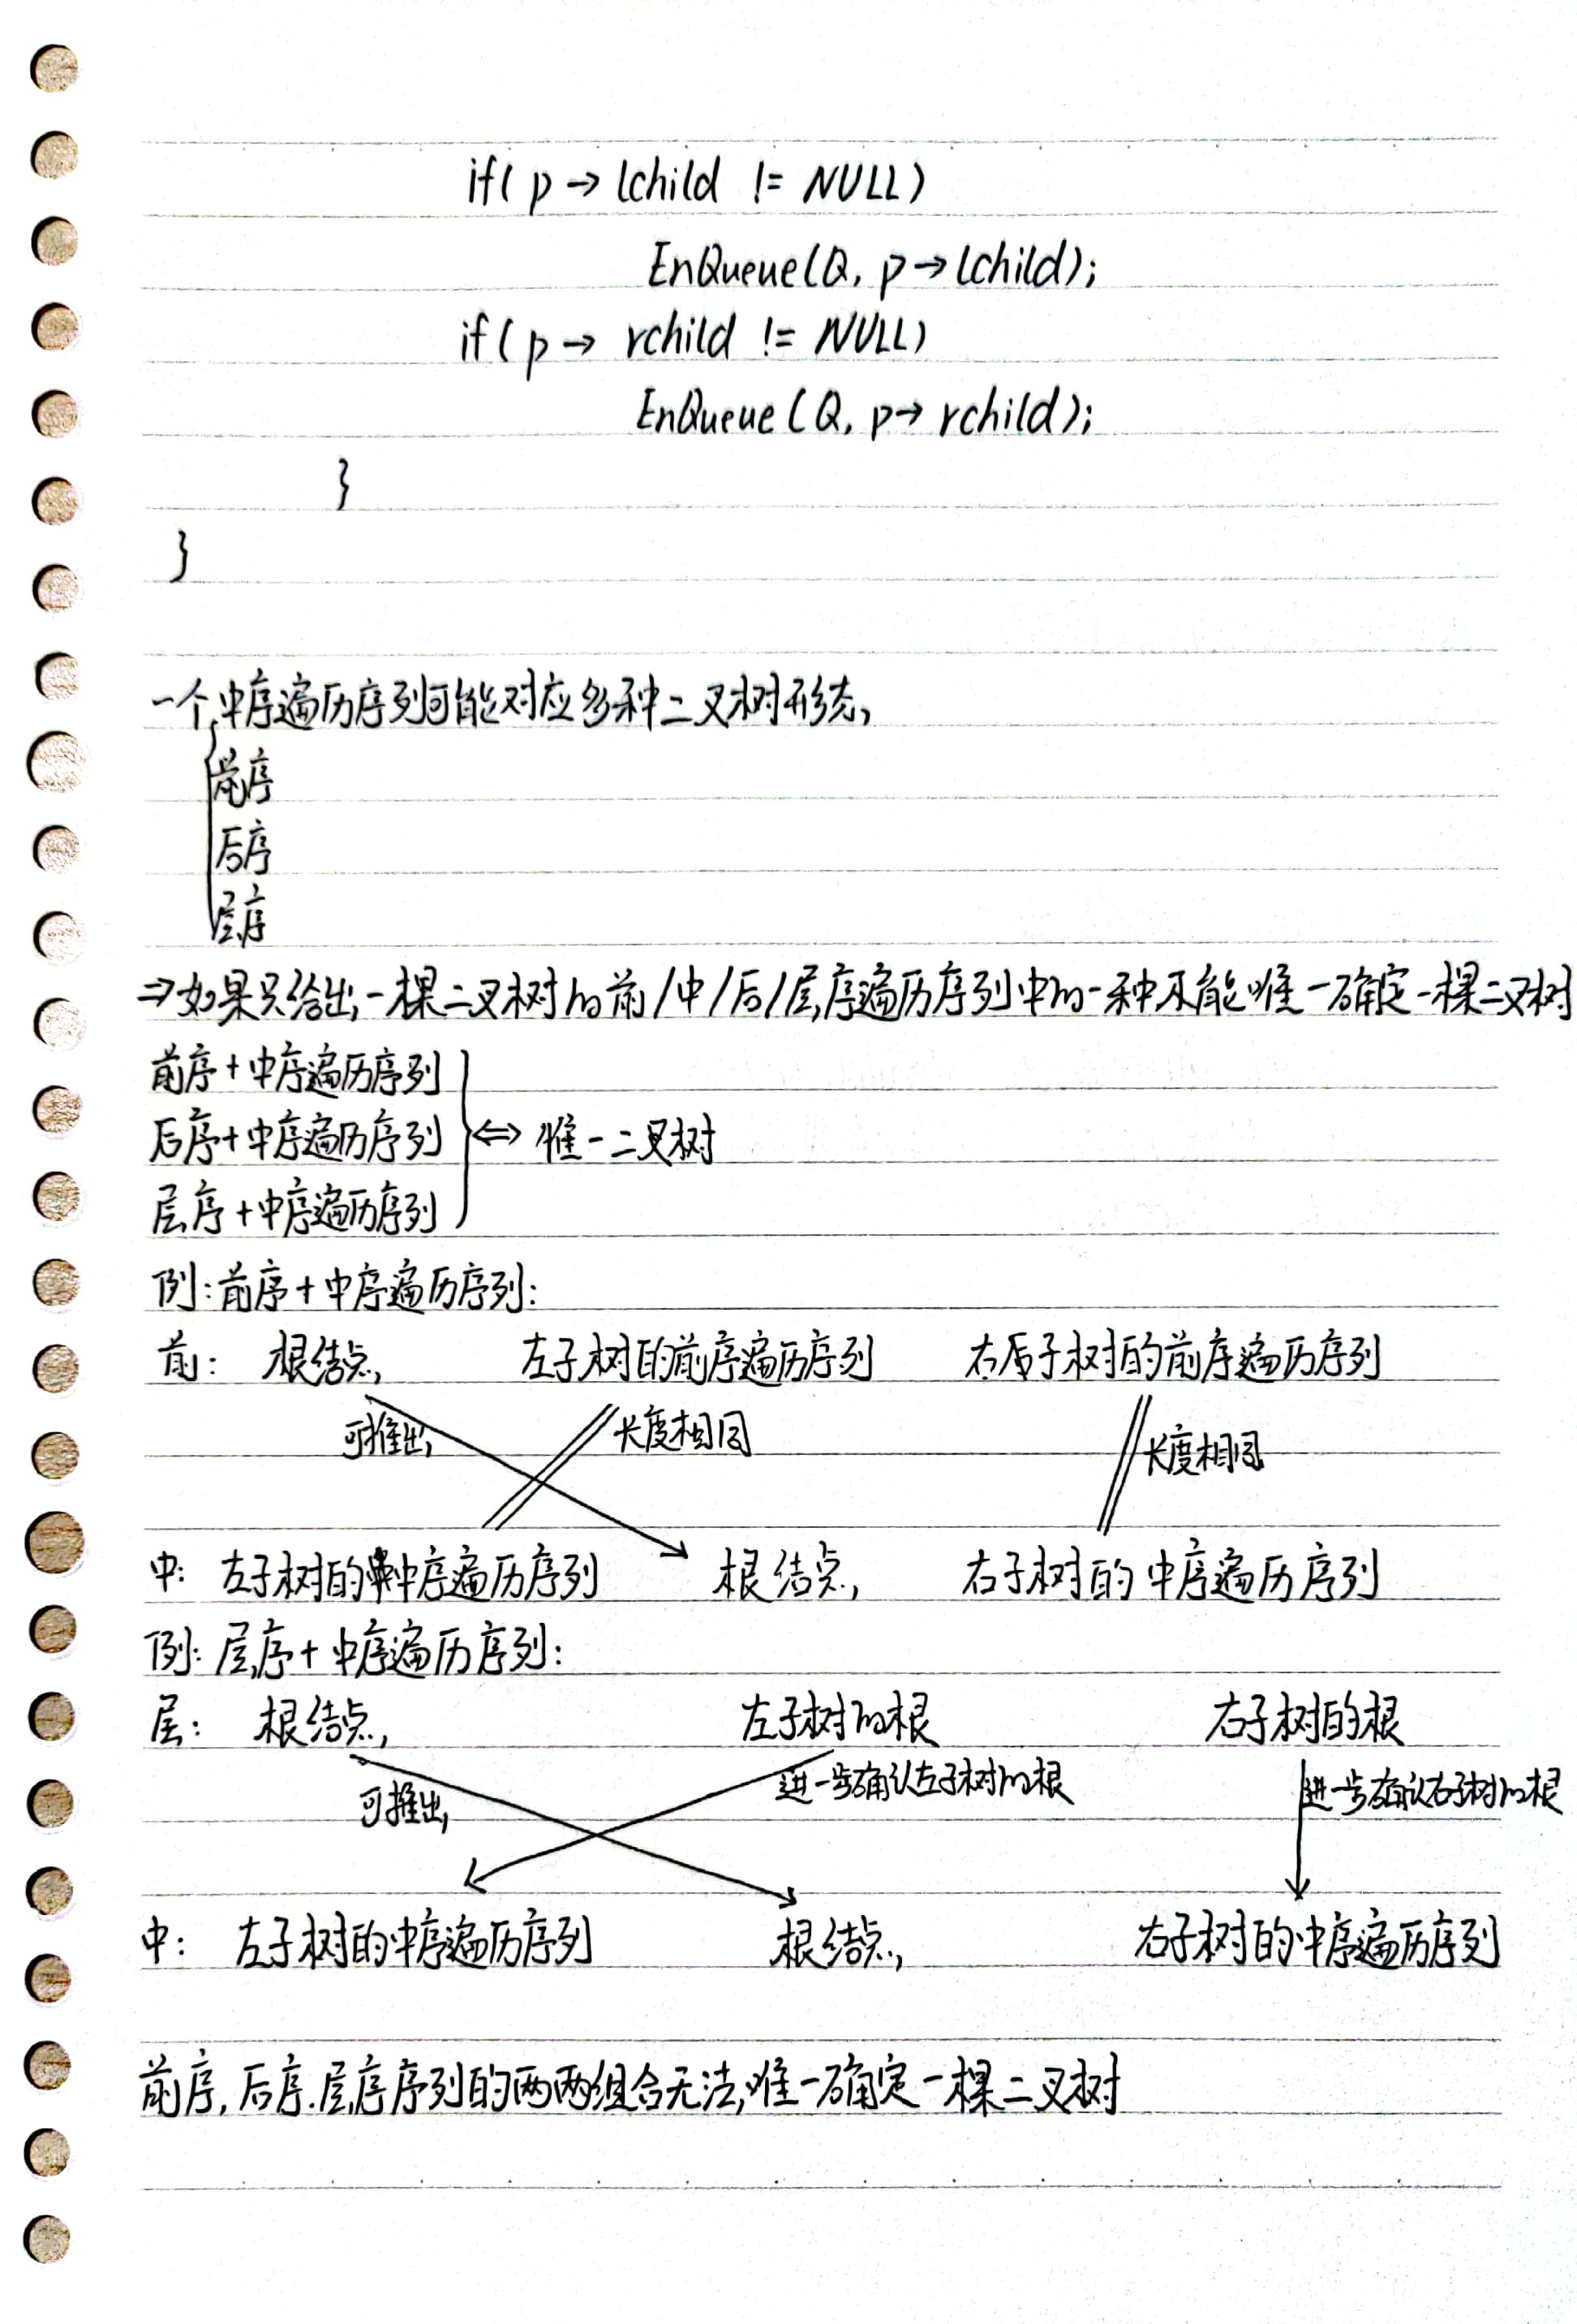 if( p → lchild != NULL)
EnQueue(Q, p → lchild);
if( p → rchild != NULL)
EnQueue(Q, p → rchild);
}
}
一个中序遍历序列可能对应多种二叉树形态,
前序
后序
层序
⇒如果只给出一棵二叉树的前/中/后/层序遍历序列中的一种不能唯一确定一棵二叉树
前序+中序遍历序列
后序+中序遍历序列 ⇔ 惟一二叉树
层序+中序遍历序列
例:前序+中序遍历序列:
前: 根结点, 左子树的前序遍历序列 右子树的前序遍历序列
可推出 长度相同 长度相同
中: 左子树的中序遍历序列 根结点, 右子树的中序遍历序列
例: 层序+中序遍历序列:
层: 根结点, 左子树的根 右子树的根
可推出 进一步确认左子树的根 进一步确认右子树的根
中: 左子树的中序遍历序列 根结点, 右子树的中序遍历序列
前序,后序.层序序列的两两组合无法唯一确定一棵二叉树